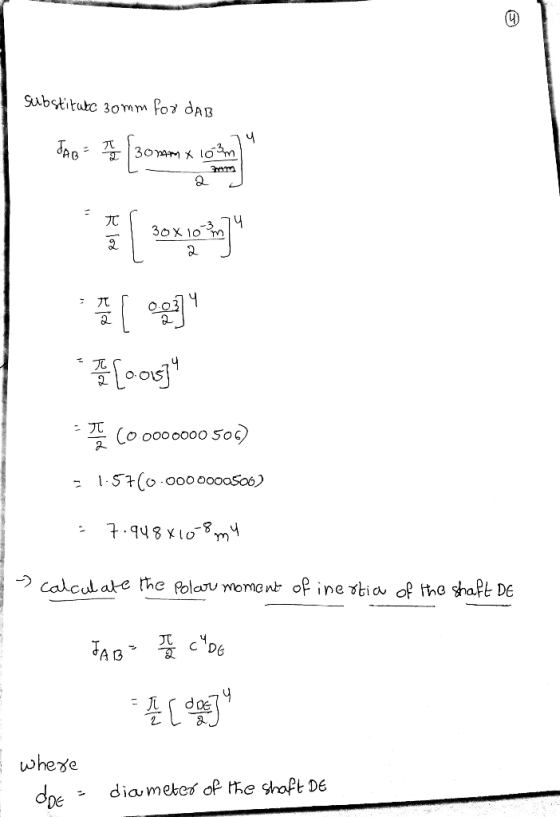 4
Substitute 30mm for dAB
JAB = π/2 [30mm x 10⁻³m/mm / 2]⁴
= π/2 [30 x 10⁻³m / 2]⁴
= π/2 [0.03/2]⁴
= π/2 [0.015]⁴
= π/2 (0.0000000506)
= 1.57(0.0000000506)
= 7.948 x 10⁻⁸ m⁴
→ calculate the Polar moment of inertia of the shaft DE
JAB = π/2 c⁴DE
= π/2 [dDE/2]⁴
where
dDE = diameter of the shaft DE